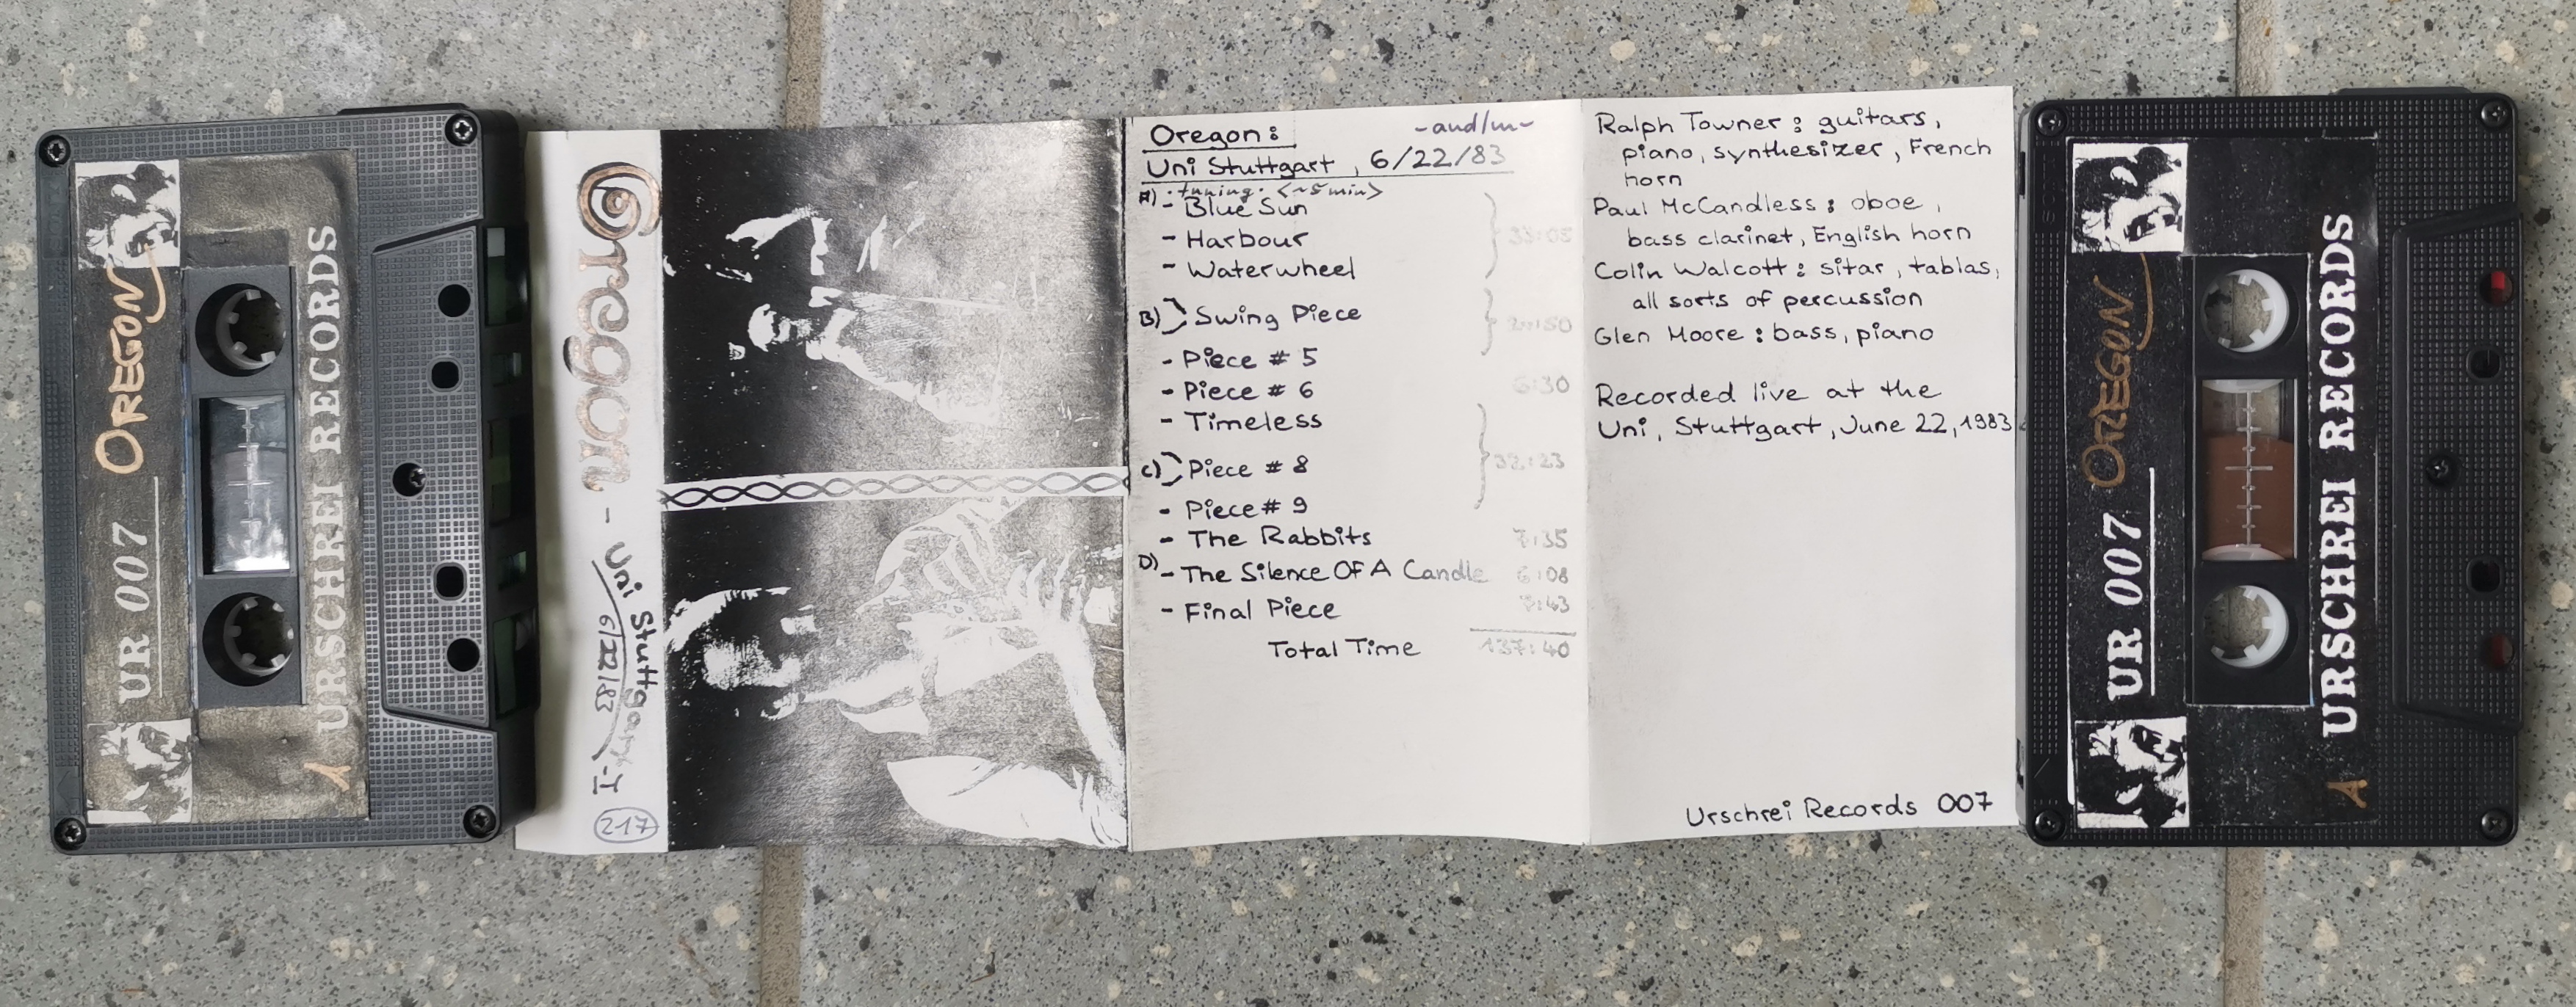 OREGON
UR 007
URSCHREI RECORDS
1
Oregon - Uni Stuttgart - I
6/22/83
217
Oregon: -aud/m-
Uni Stuttgart, 6/22/83
A) · tuning · <~5 min>
- Blue Sun
- Harbour
- Waterwheel
B) Swing Piece
- Piece # 5
- Piece # 6 6:30
- Timeless
C) Piece # 8 32:23
- Piece # 9
- The Rabbits 7:35
D) - The Silence Of A Candle 6:08
- Final Piece 7:43
Total Time 137:40
Ralph Towner: guitars,
piano, synthesizer, French
horn
Paul McCandless: oboe,
bass clarinet, English horn
Colin Walcott: sitar, tablas,
all sorts of percussion
Glen Moore: bass, piano
Recorded live at the
Uni, Stuttgart, June 22, 1983
Urschrei Records 007
OREGON
UR 007
URSCHREI RECORDS
A